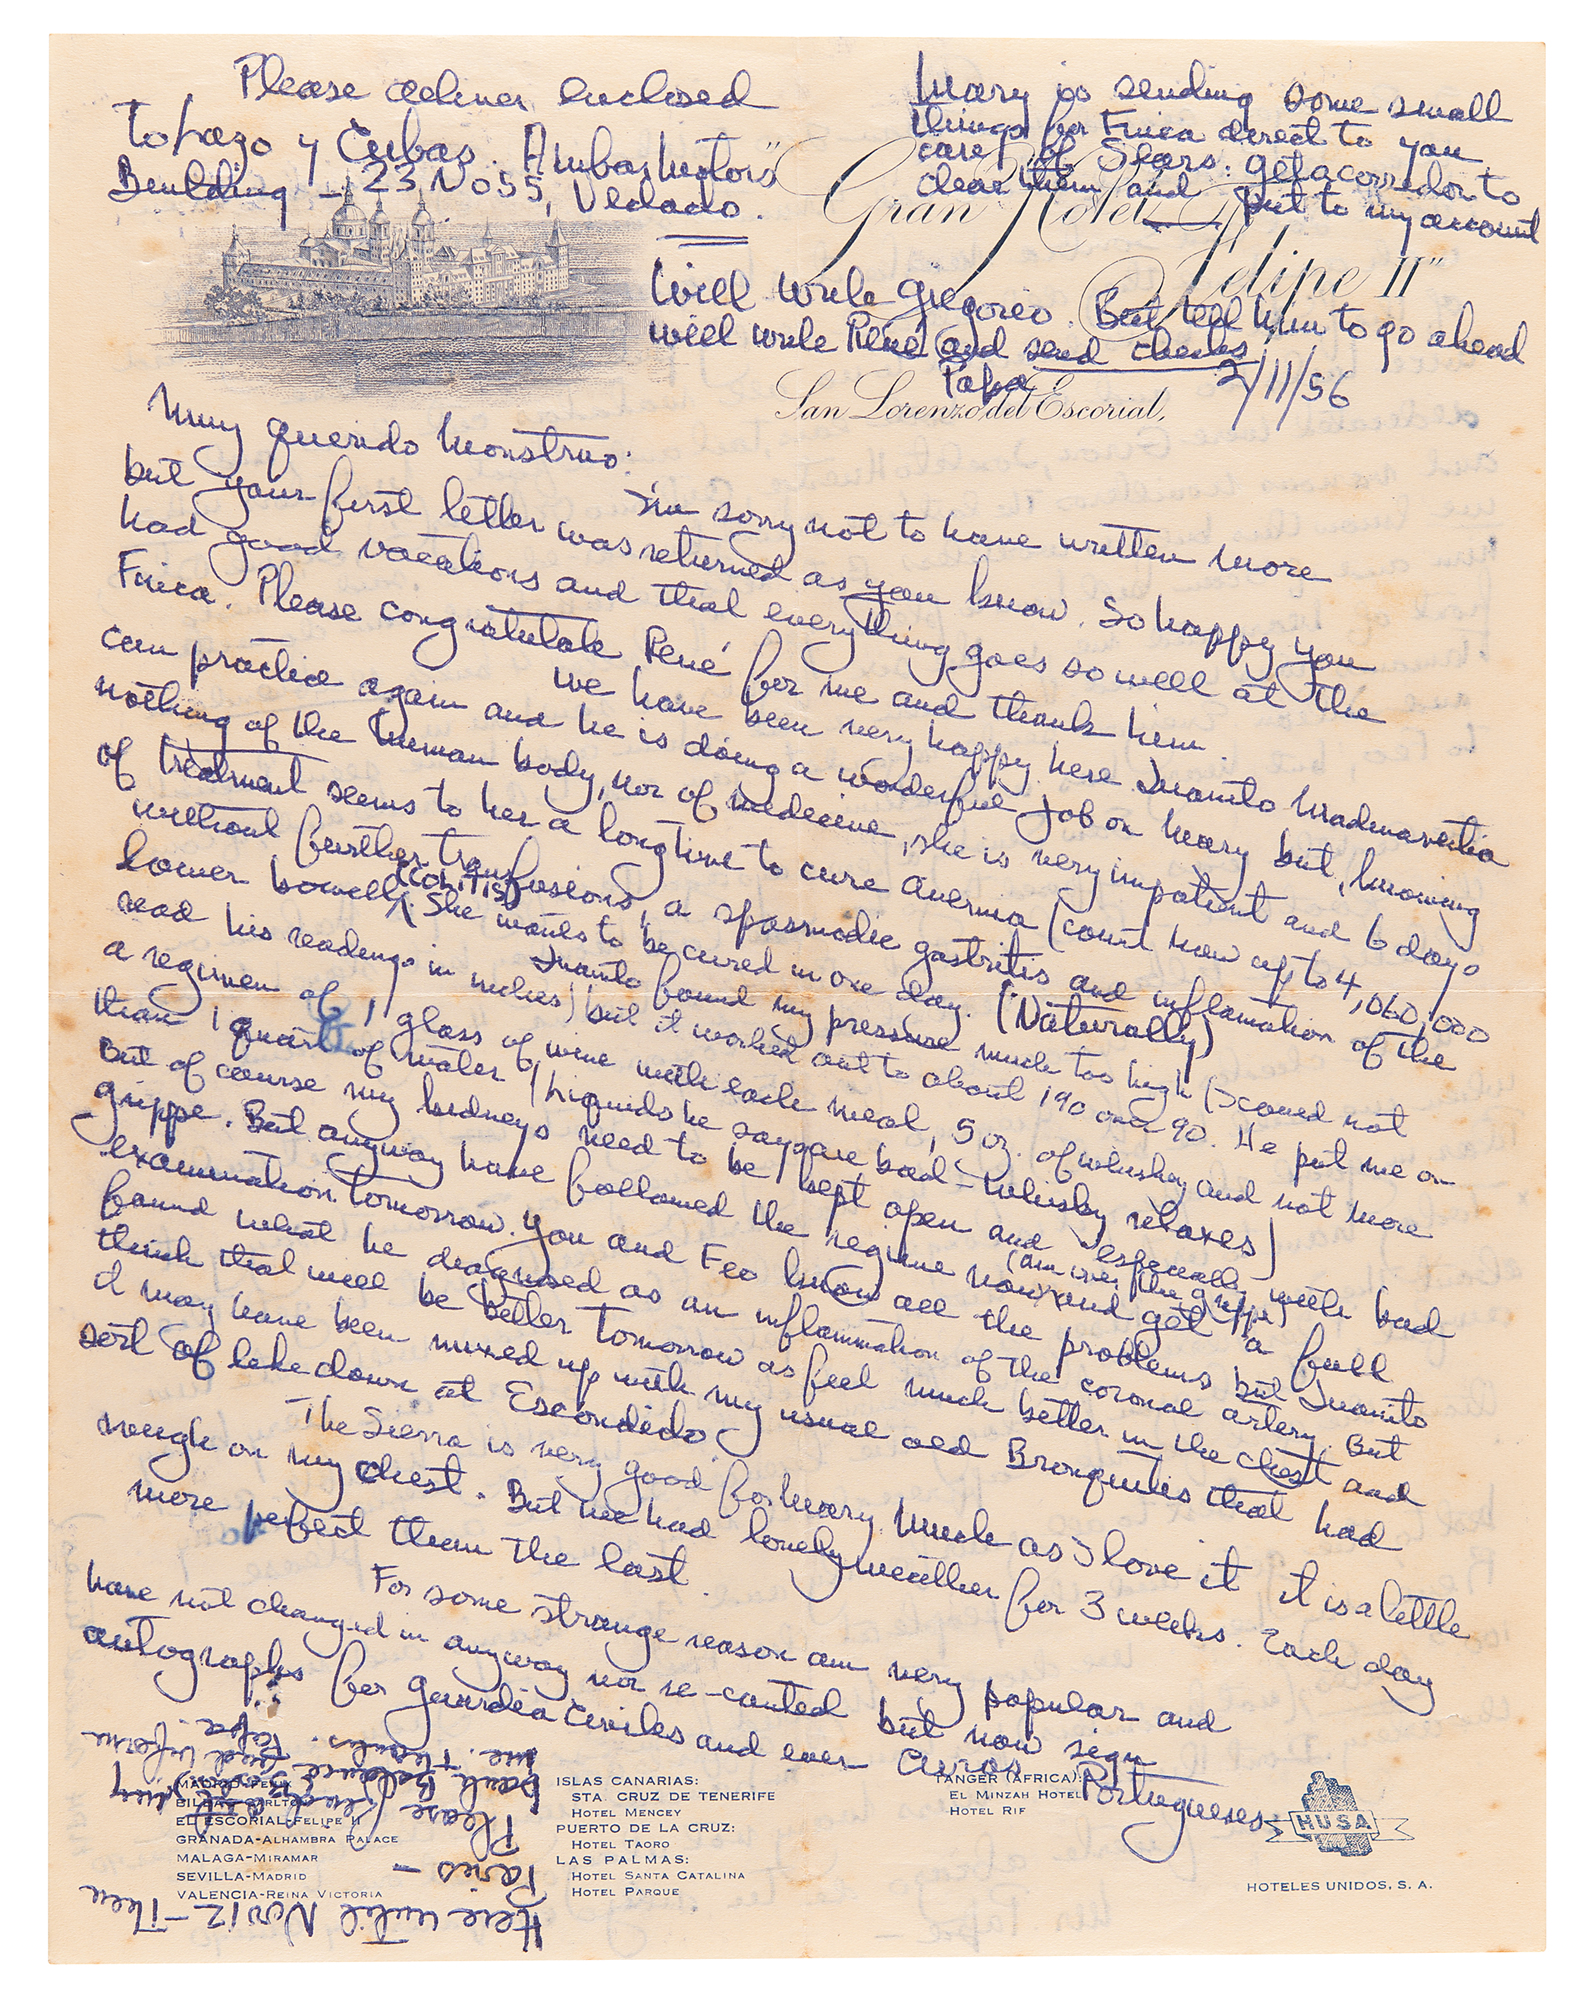 Please deliver enclosed
to Lazo y Cubas. "Ambar Motors"
Building - 23 No 55, Vedado.
Mary is sending some small
things for Finca direct to you
care of Sears: get a corredor to
clear them and put to my account
Gran Hotel
Felipe II"
Will write Gregorio. But tell him to go ahead
will write René and send checks
Papa
2/11/56
San Lorenzo del Escorial,
Muy querido Monstruo:
I'm sorry not to have written more
but your first letter was returned as you know. So happy you
had good vacations and that everything goes so well at the
Finca. Please congratulate René for me and thank him.
We have been very happy here Juanito Madinaveitia
can practice again and he is doing a wonderful job on Mary but, knowing
nothing of the human body, nor of medecine, she is very impatient and 6 days
of treatment seems to her a long time to cure anemia (count now up to 4,060,000
without further transfusions, a spasmodic gastritis and inflamation of the
lower bowell (colitis). She wants to be cured in one day. (Naturally)
Juanito found my pressure much too high (scared not
read his readings in inches) but it worked out to about 190 over 90. He put me on
a regimen of 1 glass of wine with each meal, 5 oz. of whisky and not more
than 1 quart of water (Liquids he says are bad - whisky relaxes)
But of course my kidneys need to be kept open and especially with bad
grippe. But anyway have followed the regime (am over the grippe) now and get a full
examination tomorrow. You and Feo know all the problems but Juanito
found what he diagnosed as an inflammation of the coronal artery. But
think that will be better tomorrow as feel much better in the chest and
I may have been mixed up with my usual old Bronquitis that had
sort of take down at Escondido.
The Sierra is very good for Mary. Much as I love it it is a little
rough on my chest. But we had lovely weather for 3 weeks. Each day
more perfect than the last.
For some strange reason am very popular and
have not changed in anyway nor re-canted but now sign
autographs for guardia civiles and even Curas Portugueses
Here until Nov 12 - Then
Paris -
Please send my
bank balance and inform
me. Thanks. Papa.
MADRID-FENIX
BILBAO-CARLTON
EL ESCORIAL-FELIPE II
GRANADA-ALHAMBRA PALACE
MALAGA-MIRAMAR
SEVILLA-MADRID
VALENCIA-REINA VICTORIA
ISLAS CANARIAS:
STA. CRUZ DE TENERIFE
HOTEL MENCEY
PUERTO DE LA CRUZ:
HOTEL TAORO
LAS PALMAS:
HOTEL SANTA CATALINA
HOTEL PARQUE
TANGER (AFRICA):
EL MINZAH HOTEL
HOTEL RIF
HUSA
HOTELES UNIDOS, S. A.